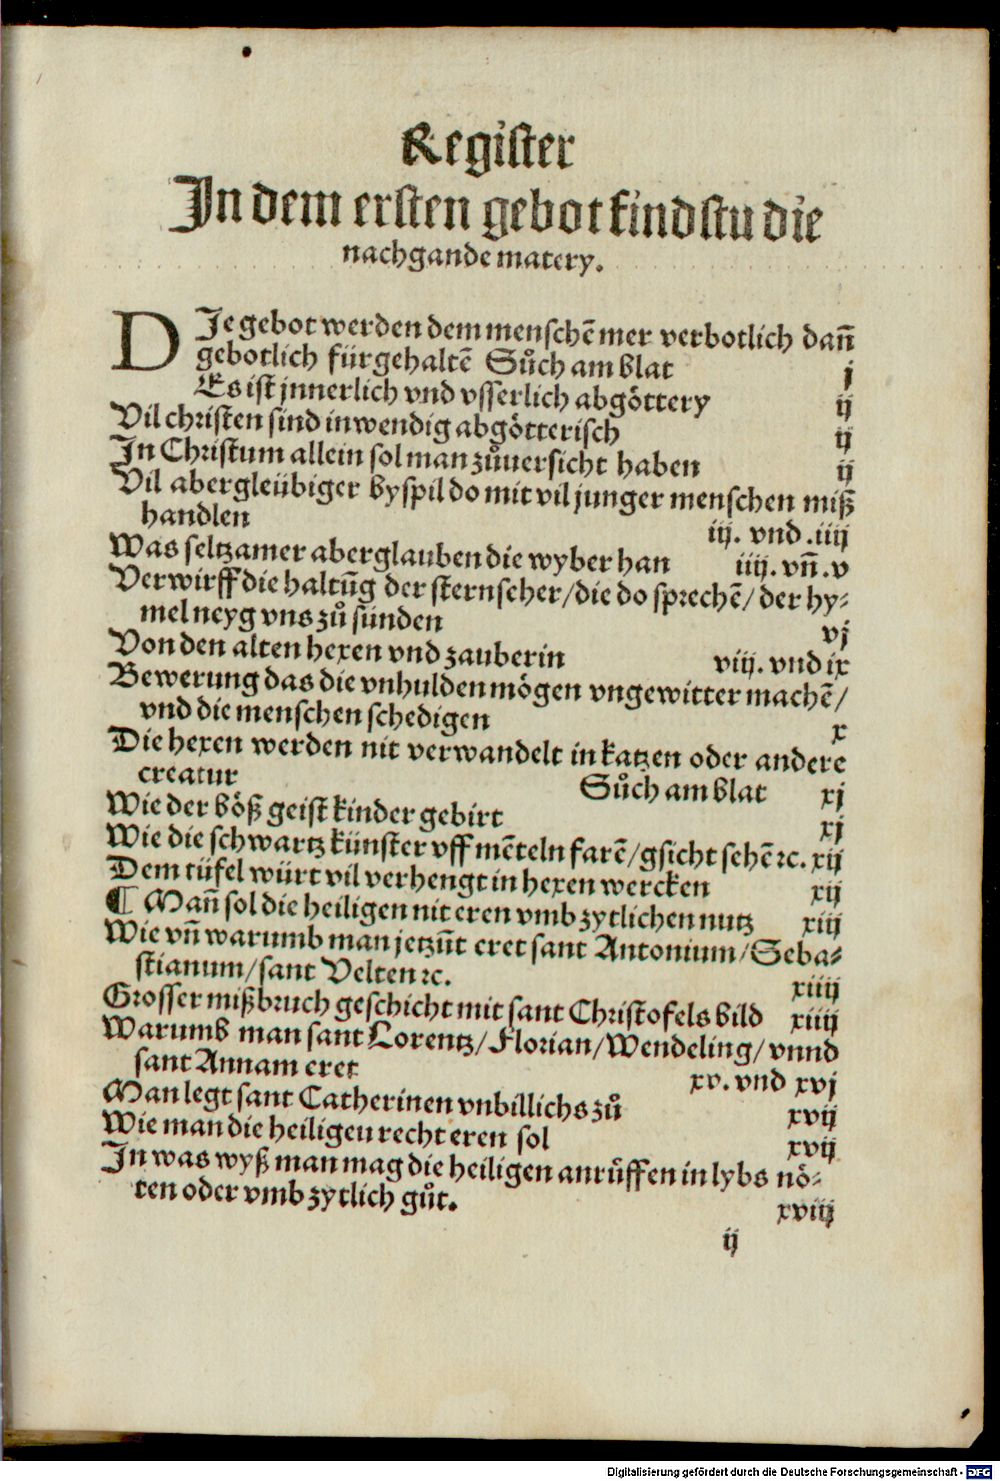 Register
In dem ersten gebot findstu die
nachgande matery.
DIe gebot werden dem menschē mer verbotlich dañ
gebotlich fürgehaltē Sůch am blat j
Es ist jnnerlich vnd vsserlich abgöttery ij
Vil christen sind inwendig abgötterisch ij
In Christum allein sol man zůuersicht haben ij
Vil abergleübiger byspil do mit vil junger menschen miß
handlen iij. vnd .iiij
Was seltzamer aberglauben die wyber han iiij. vñ .v
Verwirff die haltūg der sternseher/die do sprechē/ der hy-
mel neyg vns zů sünden vj
Von den alten hexen vnd zauberin viij. vnd ix
Bewerung das die vnhulden mögen vngewitter machē/
vnd die menschen schedigen x
Die hexen werden nit verwandelt in katzen oder andere
creatur Sůch am blat xj
Wie der böß geist kinder gebirt xj
Wie die schwartz künster vff mēteln farē/gsicht sehē ꝛc. xij
Dem tüfel würt vil verhengt in hexen wercken xij
¶ Mañ sol die heiligen nit eren vmb zytlichen nutz xiij
Wie vñ warumb man jetzūt eret sant Antonium/Seba-
stianum/sant Velten ꝛc. xiiij
Grosser mißbruch geschicht mit sant Christofels bild xiiij
Warumb man sant Lorentz/Florian/Wendeling/ vnnd
sant Annam eret xv. vnd xvj
Man legt sant Catherinen vnbillichs zů xvij
Wie man die heiligeu recht eren sol xvij
In was wyß man mag die heiligen anrůffen in lybs nö-
ten oder vmb zytlich gůt. xviij
ij
Digitalisierung gefördert durch die Deutsche Forschungsgemeinschaft - DFG